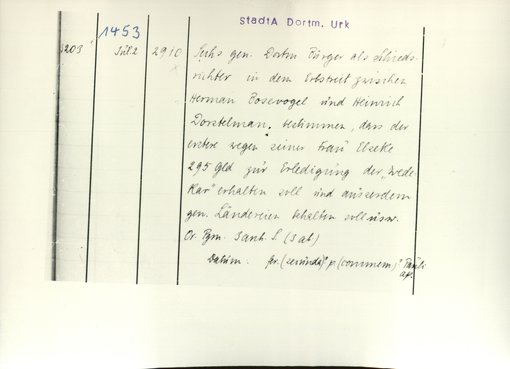 StadtA Dortm. Urk
1453
1203 Juli 2 2910 Sechs gen. Dortm Bürger als Schieds-
richter in dem Erbstreit zwischen
Herman Bosevogel und Heinrich
Dorstelman. bestimmen, dass der
erstere wegen seiner Frau Elseke
295 Gld zur Erledigung der
erhalten soll und ausserdem
gen. Ländereien behalten soll usw.
Or. Pgm. 3 anh. S. (3 ab)
Datum. fer. (secunda) p. (commem.) Pauli
ap.